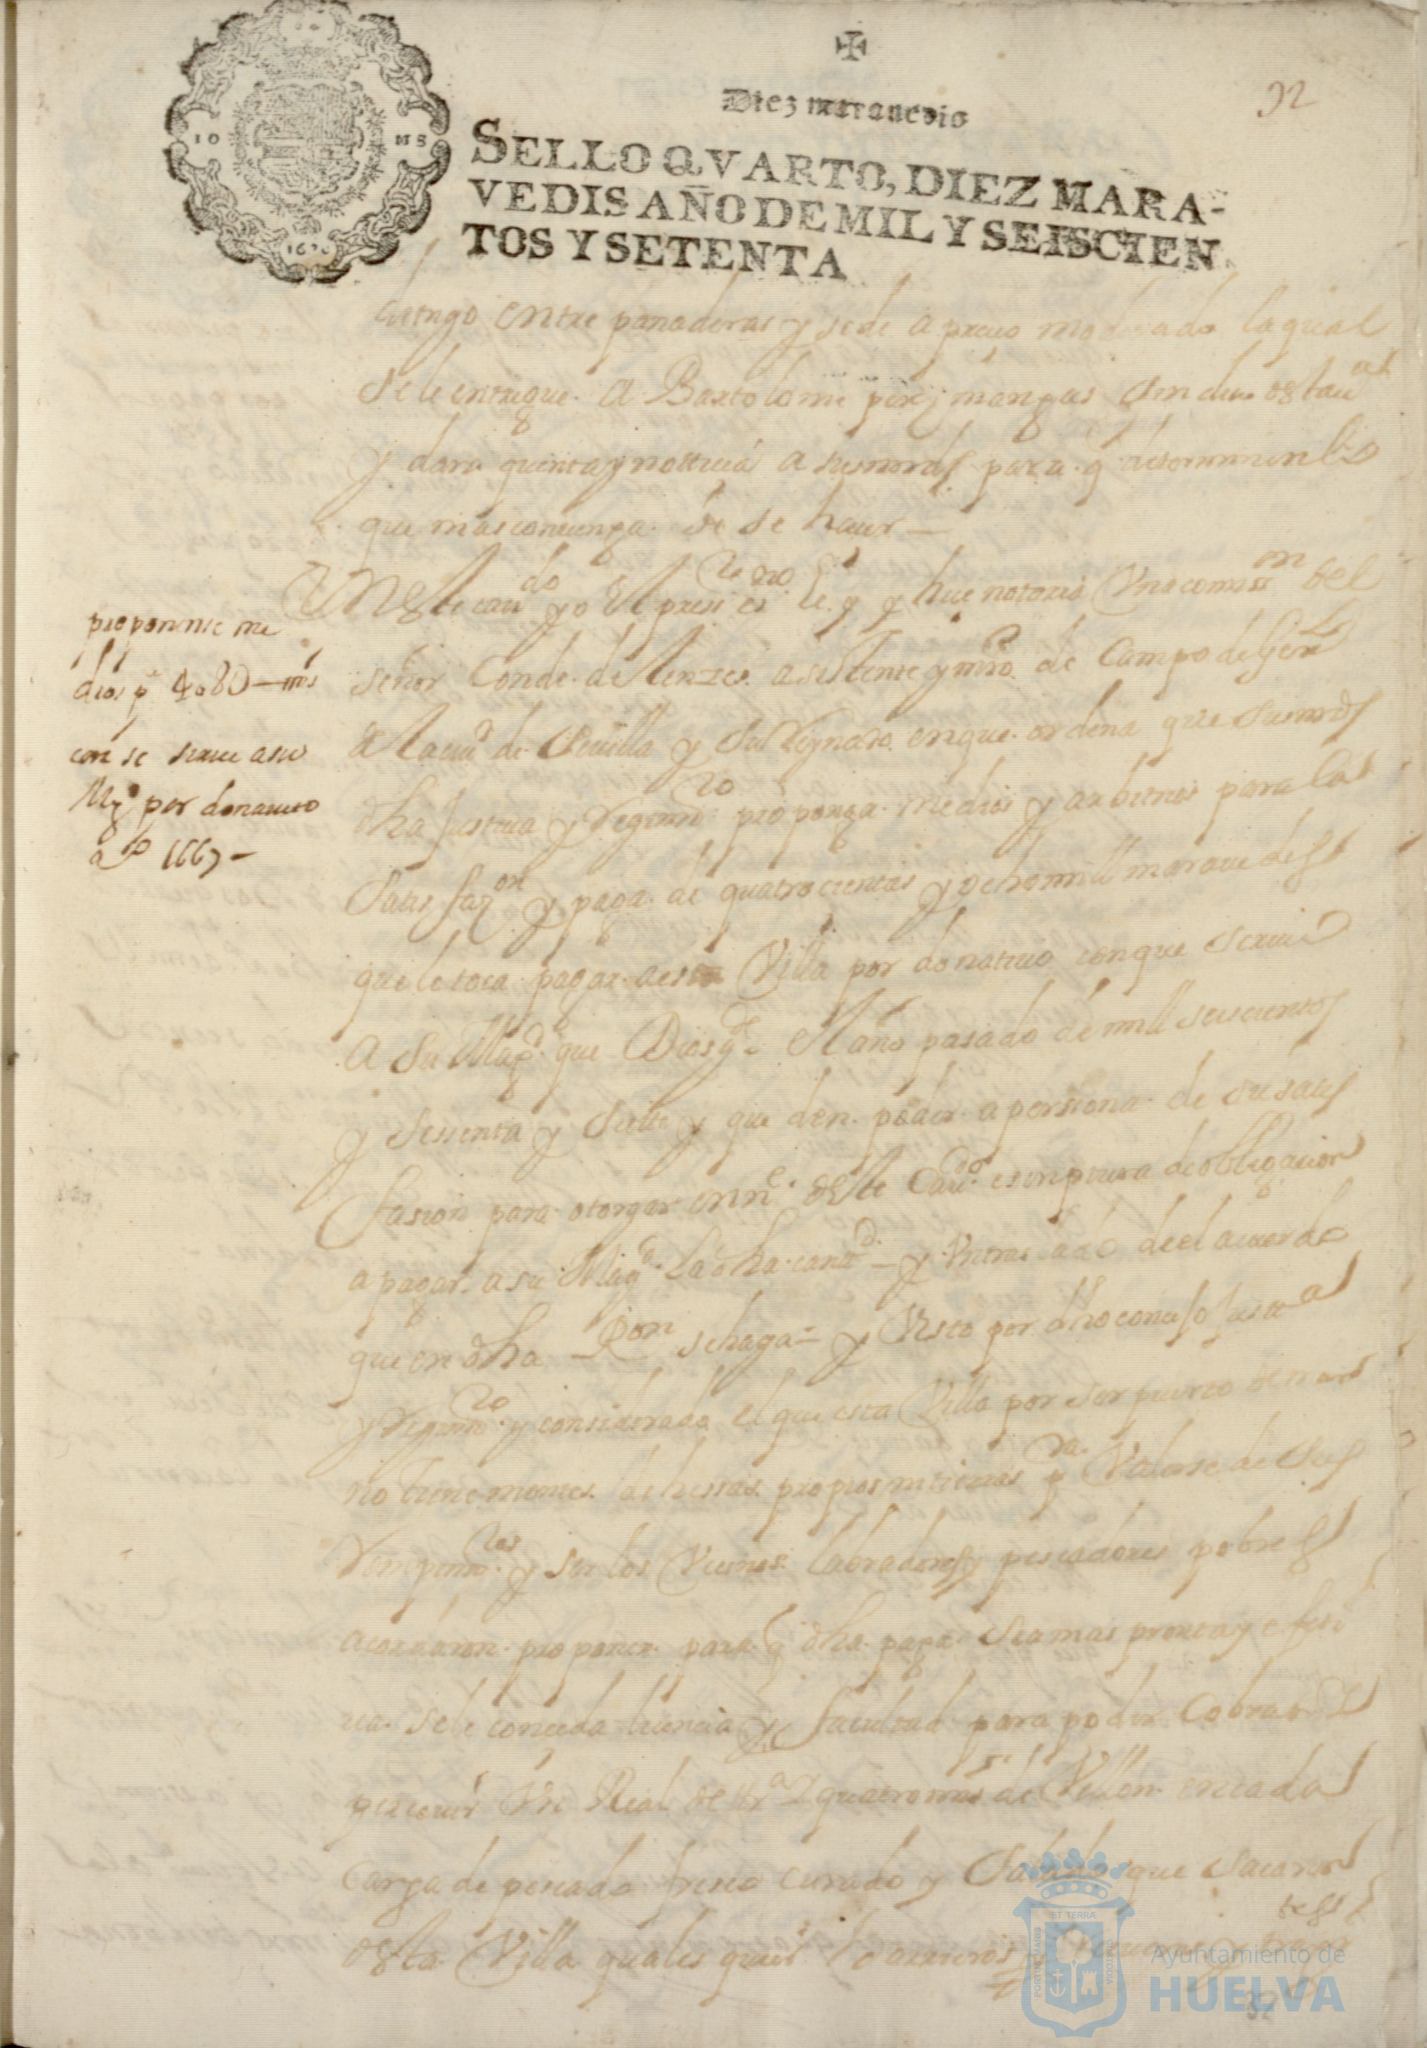 32
Diez marauedis
SELLO QVARTO, DIEZ MARA-
VEDIS AÑO DE MIL Y SEISCIEN
TOS Y SETENTA
10 MS
167
entre panaderas y se de a precio moderado la qual
se le entregue a Bartolome perez mangas
y dara quenta y notticia a sus mrds para q determinen lo
que mas conuenga se haser
En este caudo yo el presente es no ley y hise notoria Una comissn del
señor Conde de asistente y mro de Campo de Genl
de la ciud de Seuilla y su Reynado en que ordena que sus mrds
dha Justicia y Regimto proponga medios y arbitrios para la
satisfazon y paga de quatrocientas y ocho mill marauedis
que le toca pagar a esta Villa por donatiuo con que siruio
A Su Magd que Dios gde el año pasado de mill seiscientos
y sesenta y siete y que den poder a persona de su satis
fasion para otorgar en ne deste Caudo escriptura de obligacion
a pagar a su Magd la dha cantd y del acuerdo
que en dha Ron se haga y Visto por dho consejo Justa
y Regimto y considerado el que esta Villa por ser puerto de mar
no tiene montes dehessas propios ni tierras pa Valerse de sus
Rompimtos y ser los Vecinos labradores y pescadores pobres
acordaron proponer para q dha paga sea mas pronta y efecti
ua se le conceda licencia y facultad para poder Cobrar
perceuir Un Real de tra quatro mrs de Vellon en cada
Carga de pescado fresco curado y Salado que sacaren
desta Villa quales quier arrieros
proponense me
dios pa 408D mrs
con se sirue a su
Mgd por donatiuo
año 1667
Ayuntamiento de
HUELVA